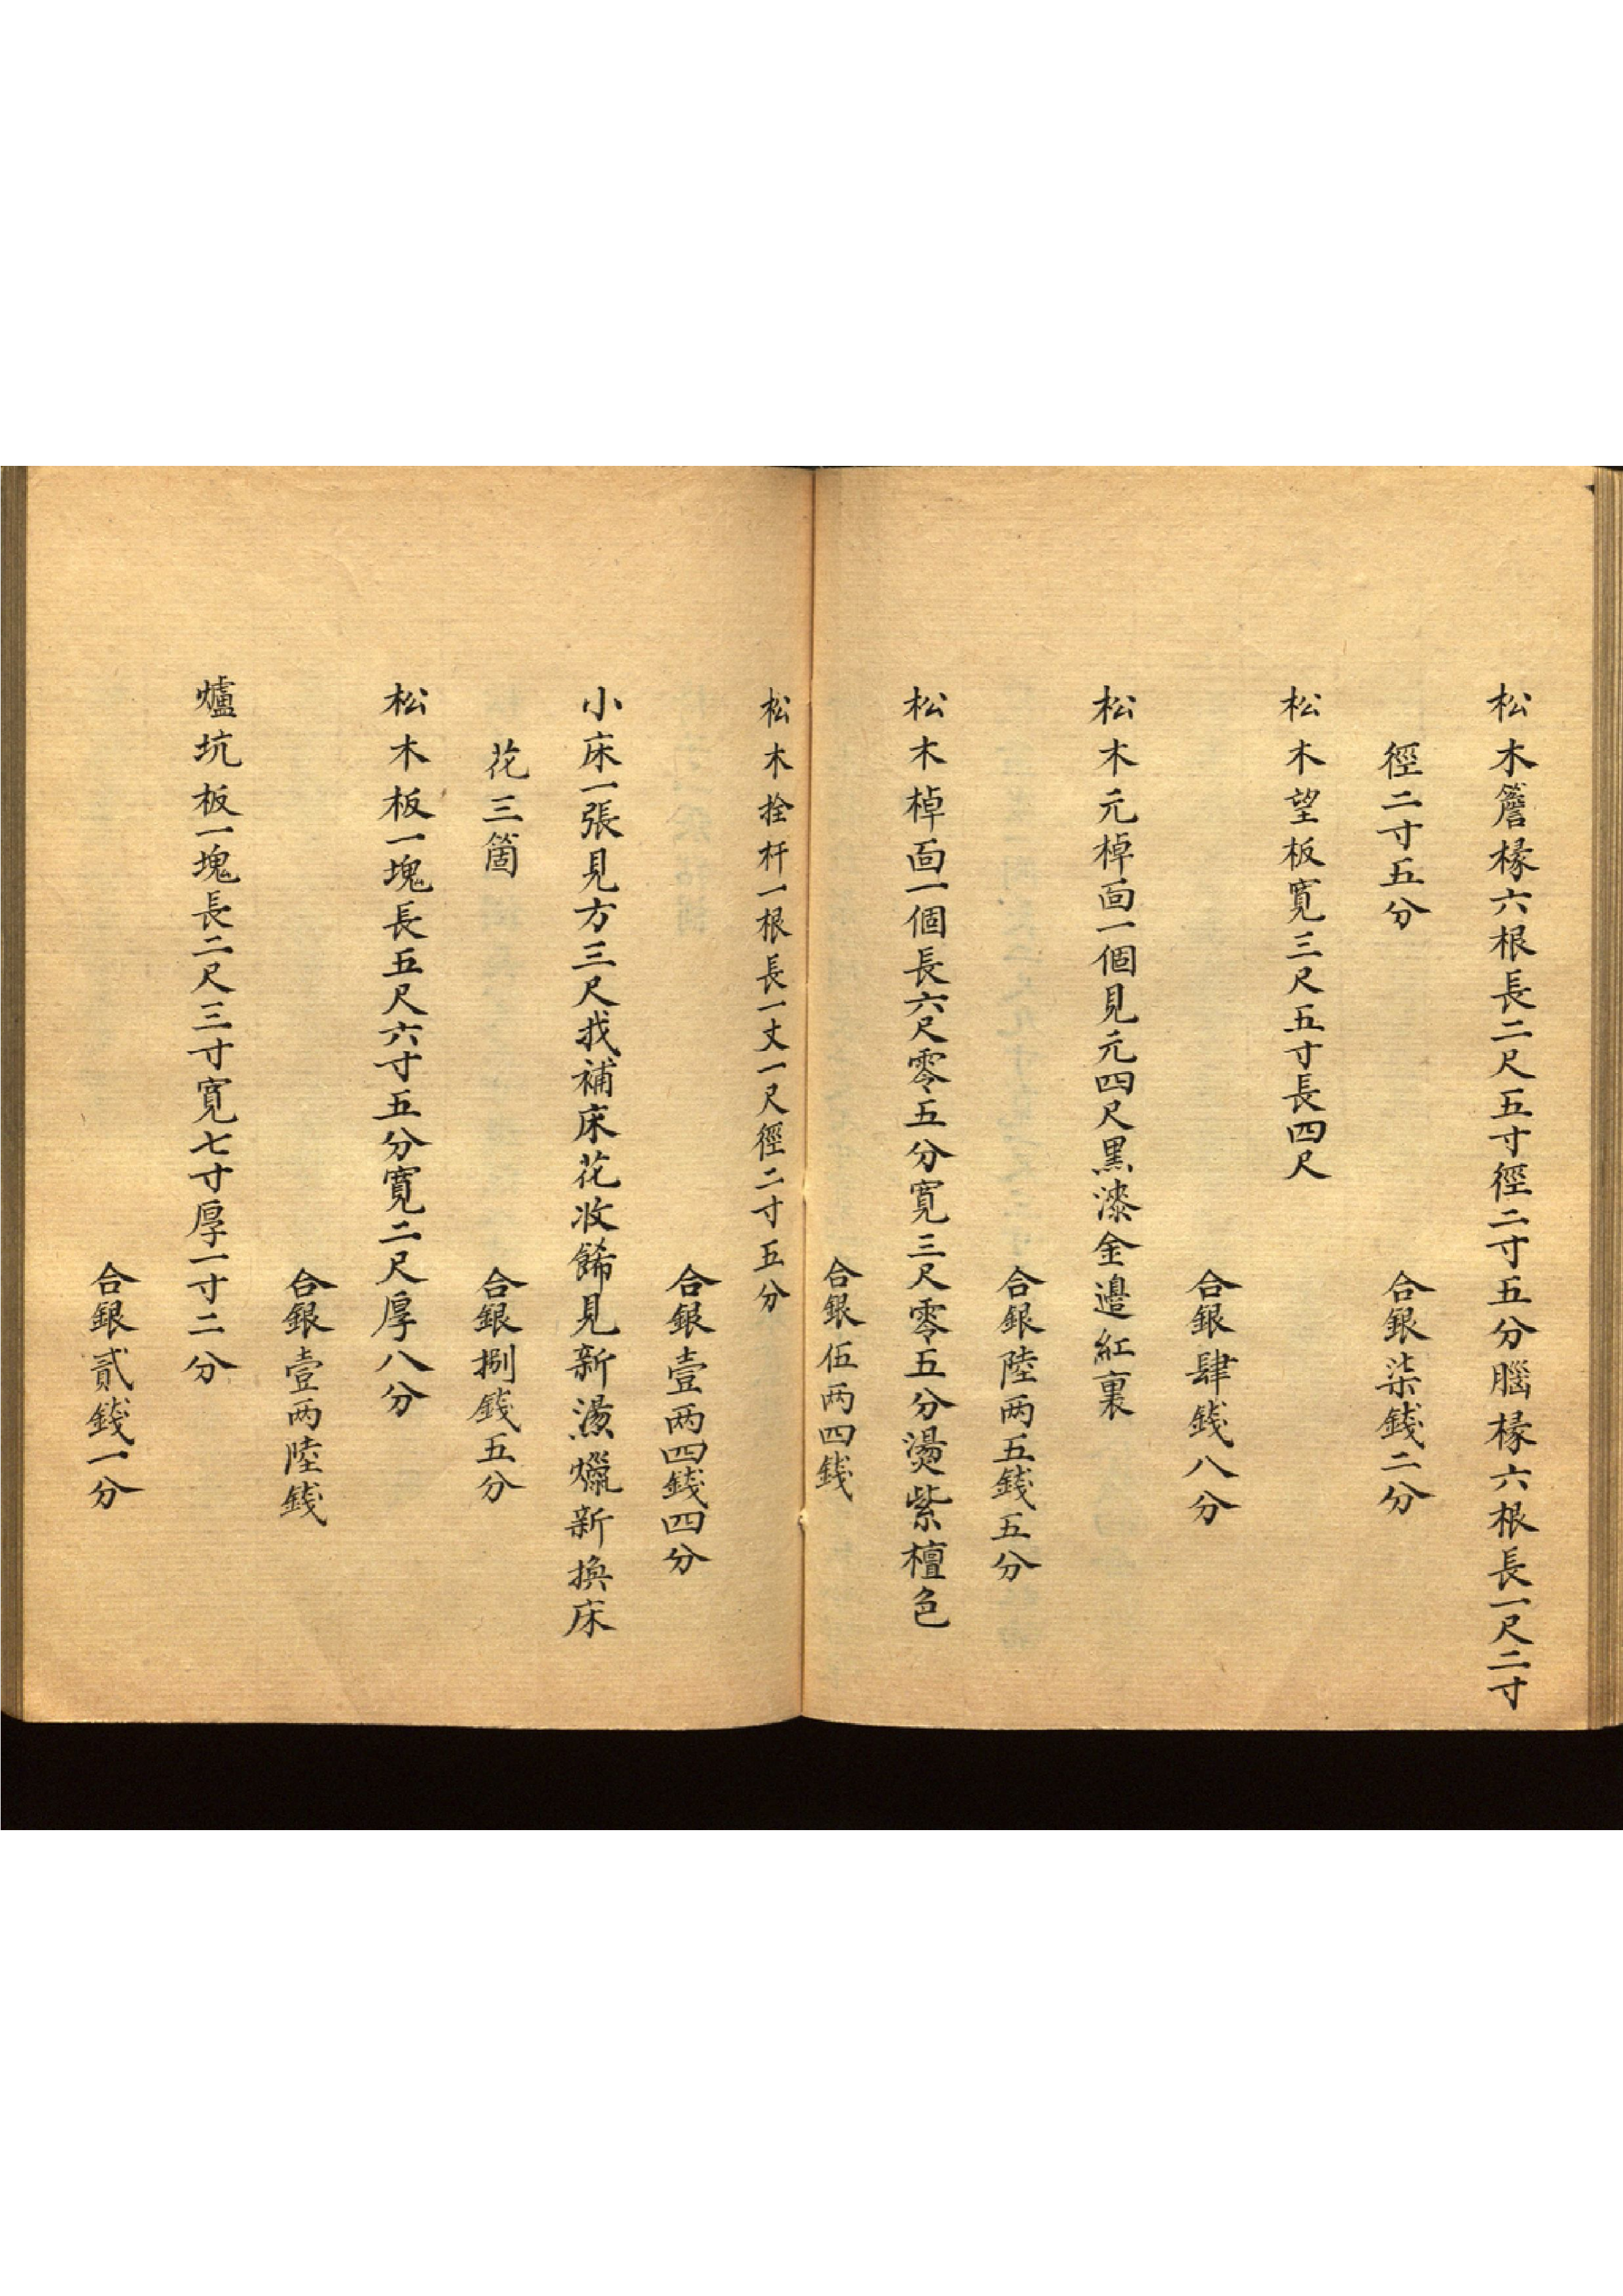 松木簷椽六根長二尺五寸徑二寸五分腦椽六根長一尺二寸
徑二寸五分
合銀柒錢二分
松木望板寬三尺五寸長四尺
合銀肆錢八分
松木元棹面一個見元四尺黑漆金邊紅裏
合銀陸两五錢五分
松木棹面一個長六尺零五分寬三尺零五分燙紫檀色
合銀伍两四錢
松木拴杆一根長一丈一尺徑二寸五分
合銀壹两四錢四分
小床一張見方三尺找補床花收餙見新燙爉新換床
花三箇
合銀捌錢五分
松木板一塊長五尺六寸五分寬二尺厚八分
合銀壹两陸錢
爐坑板一塊長二尺三寸寬七寸厚一寸二分
合銀貳錢一分